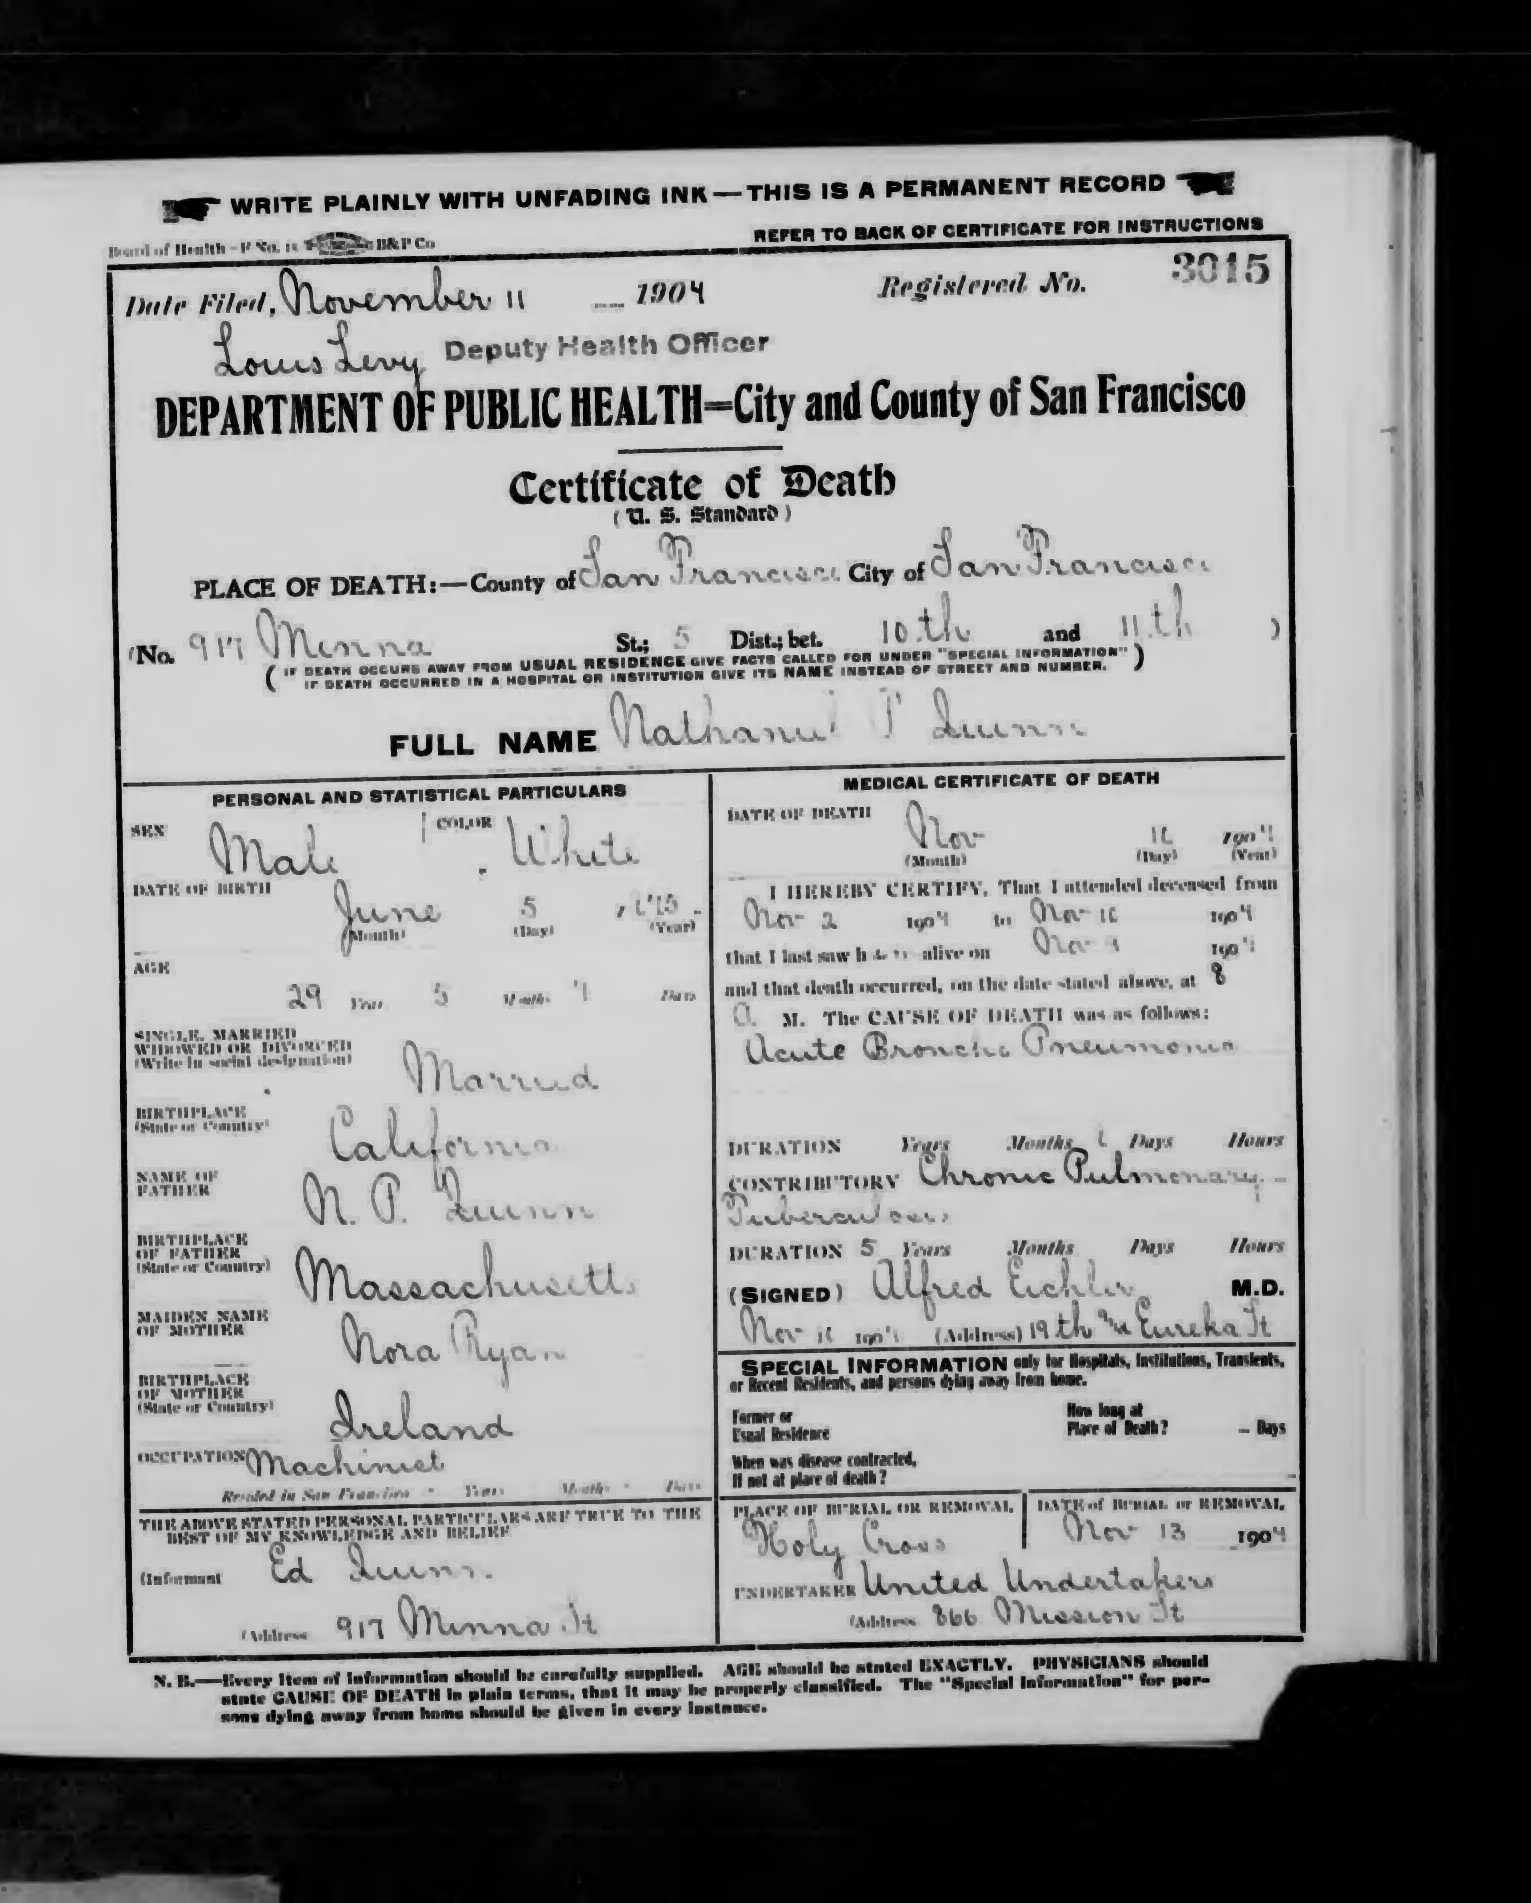 WRITE PLAINLY WITH UNFADING INK — THIS IS A PERMANENT RECORD
Board of Health - F No. B&P Co
REFER TO BACK OF CERTIFICATE FOR INSTRUCTIONS
Date Filed, November 11 1904 Registered No. 3015
Louis Levy Deputy Health Officer
DEPARTMENT OF PUBLIC HEALTH=City and County of San Francisco
Certificate of Death
(U. S. Standard)
PLACE OF DEATH:—County of San Francisco City of San Francisco
(No. 917 Minna St.; 5 Dist.; bet. 10th and 11th )
( IF DEATH OCCURS AWAY FROM USUAL RESIDENCE GIVE FACTS CALLED FOR UNDER "SPECIAL INFORMATION" )
IF DEATH OCCURRED IN A HOSPITAL OR INSTITUTION GIVE ITS NAME INSTEAD OF STREET AND NUMBER.
FULL NAME Nathaniel P Quinn
PERSONAL AND STATISTICAL PARTICULARS
SEX Male COLOR White
DATE OF BIRTH
June 5 1875
(Month) (Day) (Year)
AGE
29 Years 5 Months Days
SINGLE, MARRIED
WIDOWED OR DIVORCED
(Write in social designation)
Married
BIRTHPLACE
(State or Country)
California
NAME OF
FATHER
N. P. Quinn
BIRTHPLACE
OF FATHER
(State or Country)
Massachusetts
MAIDEN NAME
OF MOTHER
Nora Ryan
BIRTHPLACE
OF MOTHER
(State or Country)
Ireland
OCCUPATION Machinist
Resided in San Francisco - Years Months - Days
THE ABOVE STATED PERSONAL PARTICULARS ARE TRUE TO THE
BEST OF MY KNOWLEDGE AND BELIEF
(Informant Ed Quinn.
(Address 917 Minna St
MEDICAL CERTIFICATE OF DEATH
DATE OF DEATH
Nov 10 1904
(Month) (Day) (Year)
I HEREBY CERTIFY, That I attended deceased from
Nov 2 1904 to Nov 10 1904
that I last saw him alive on Nov 9 1904
and that death occurred, on the date stated above, at 8
A. M. The CAUSE OF DEATH was as follows:
Acute Broncho Pneumonia
DURATION Years Months Days Hours
CONTRIBUTORY Chronic Pulmonary
Tuberculosis
DURATION 5 Years Months Days Hours
(SIGNED) Alfred Eichler M.D.
Nov 10 1904 (Address) 19th and Eureka St
SPECIAL INFORMATION only for Hospitals, Institutions, Transients,
or Recent Residents, and persons dying away from home.
Former or
Usual Residence
How long at
Place of Death? - Days
When was disease contracted,
If not at place of death?
PLACE OF BURIAL OR REMOVAL
Holy Cross
DATE of BURIAL or REMOVAL
Nov 13 1904
UNDERTAKER United Undertakers
(Address 866 Mission St
N. B.—Every item of information should be carefully supplied. AGE should be stated EXACTLY. PHYSICIANS should
state CAUSE OF DEATH in plain terms, that it may be properly classified. The "Special Information" for per-
sons dying away from home should be given in every instance.